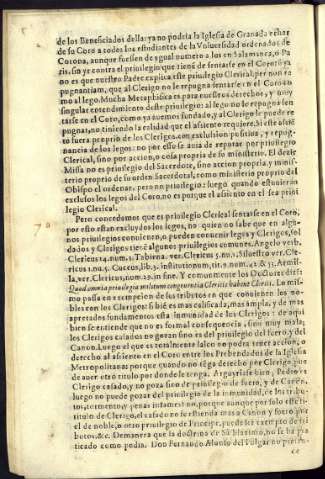 de los Beneficiados della: ya no podria la Iglesia de Granada echar
de su Coro a todos los estudiantes de la Vniuersidad ordenados de
Corona, aunque fuessen de igual numero a los en Salamanca, o Pa
ris, sin yr contra el priuilegio que tiene de sentarse en el Coro: ò ya
no es que nuestro Padre explica este priuilegio Clerical per non re
pugnantiam, que al Clerigo no le repugna sentarse en el Coro, co
mo al lego. Mucha Metaphisica es para nuestros derechos, y muy
singular entendimiento deste priuilegio: al lego no le repugna sen
tarse en el Coro, como ya auemos fundado, y al Clerigo le puede re
pugnar, no teniendo la calidad que el assiento requiere.
fuera proprio de los Clerigos, con exclusion positiua, y repug-
nancia de los legos: no por esso se auia de reputar por priuilegio
Clerical, sino por accion, o cosa propria de su ministerio. El dezir
Missa no es priuilegio del Sacerdote, sino accion propria y minis-
terio proprio de su orden Sacerdotal, como ministerio proprio del
Obispo el ordenar, pero no priuilegio: luego quando estuuieran
exclusos los legos del Coro, no es porque el assiento en el sea priui
legio Clerical.
Pero concedamos que es priuilegio Clerical sentarse en el Coro,
por esso estan excluydos los legos, no: quien no sabe que en algu-
nos priuilegios conuienen, o pueden conuenir legos y Clerigos, sol
dados y Clerigos tienē algunos priuilegios comunes. Angelo verb.
Clericus 14. num. 1. Tabiena. ver. Clericus 5. nu. 1. Siluestro ver. Cle-
ricus 1. nu. 5. Cuccus, lib. 3. institutionum, tit. 2. num. 42. & 53. Armil-
la, ver. Clericus, num. 29. in fine. Y comunmente los Doctores dizē:
Quod omnia priuilegia militum congruentia Clericis habent Clerici. Lo mis-
mo passa en recepcion de los tributos en que conuienen los no-
bles con los Clerigos: si biē es mas calificada, mas ampla, y de mas
apretados fundamentos esta inmunidad de los Clerigos: de aqui
bien se entiende que no es formal consequencia, sino muy mala;
los Clerigos casados no gozan sino es del priuilegio del fuero, y del
Canon. Luego el que es totalmente laico no podra tener accion, o
derecho al assiento en el Coro entre los Prebendados de la Iglesia
Metropolitana: porque quando no tēga derecho por Clerigo, pue
de auer otro titulo por donde le tenga. Arguyrase bien, Pedro es
Clerigo casado, y no goza sino de priuilegio de fuero, y de Canon,
luego no puede gozar del priuilegio de la inmunidad, de los tribu-
tos, tormento, y penas infames: no, porque aunque por solo este
titulo de Clerigo, el casado no se estienda mas a Canon y fuero, por
el de noble, o otro priuilegio de Principe, puede ser exempto de tri
butos, &c. Demanera que la doctrina en si blanino, no se ha pra
ticado como podia. Don Fernando Alonso del Pulgar no preten-